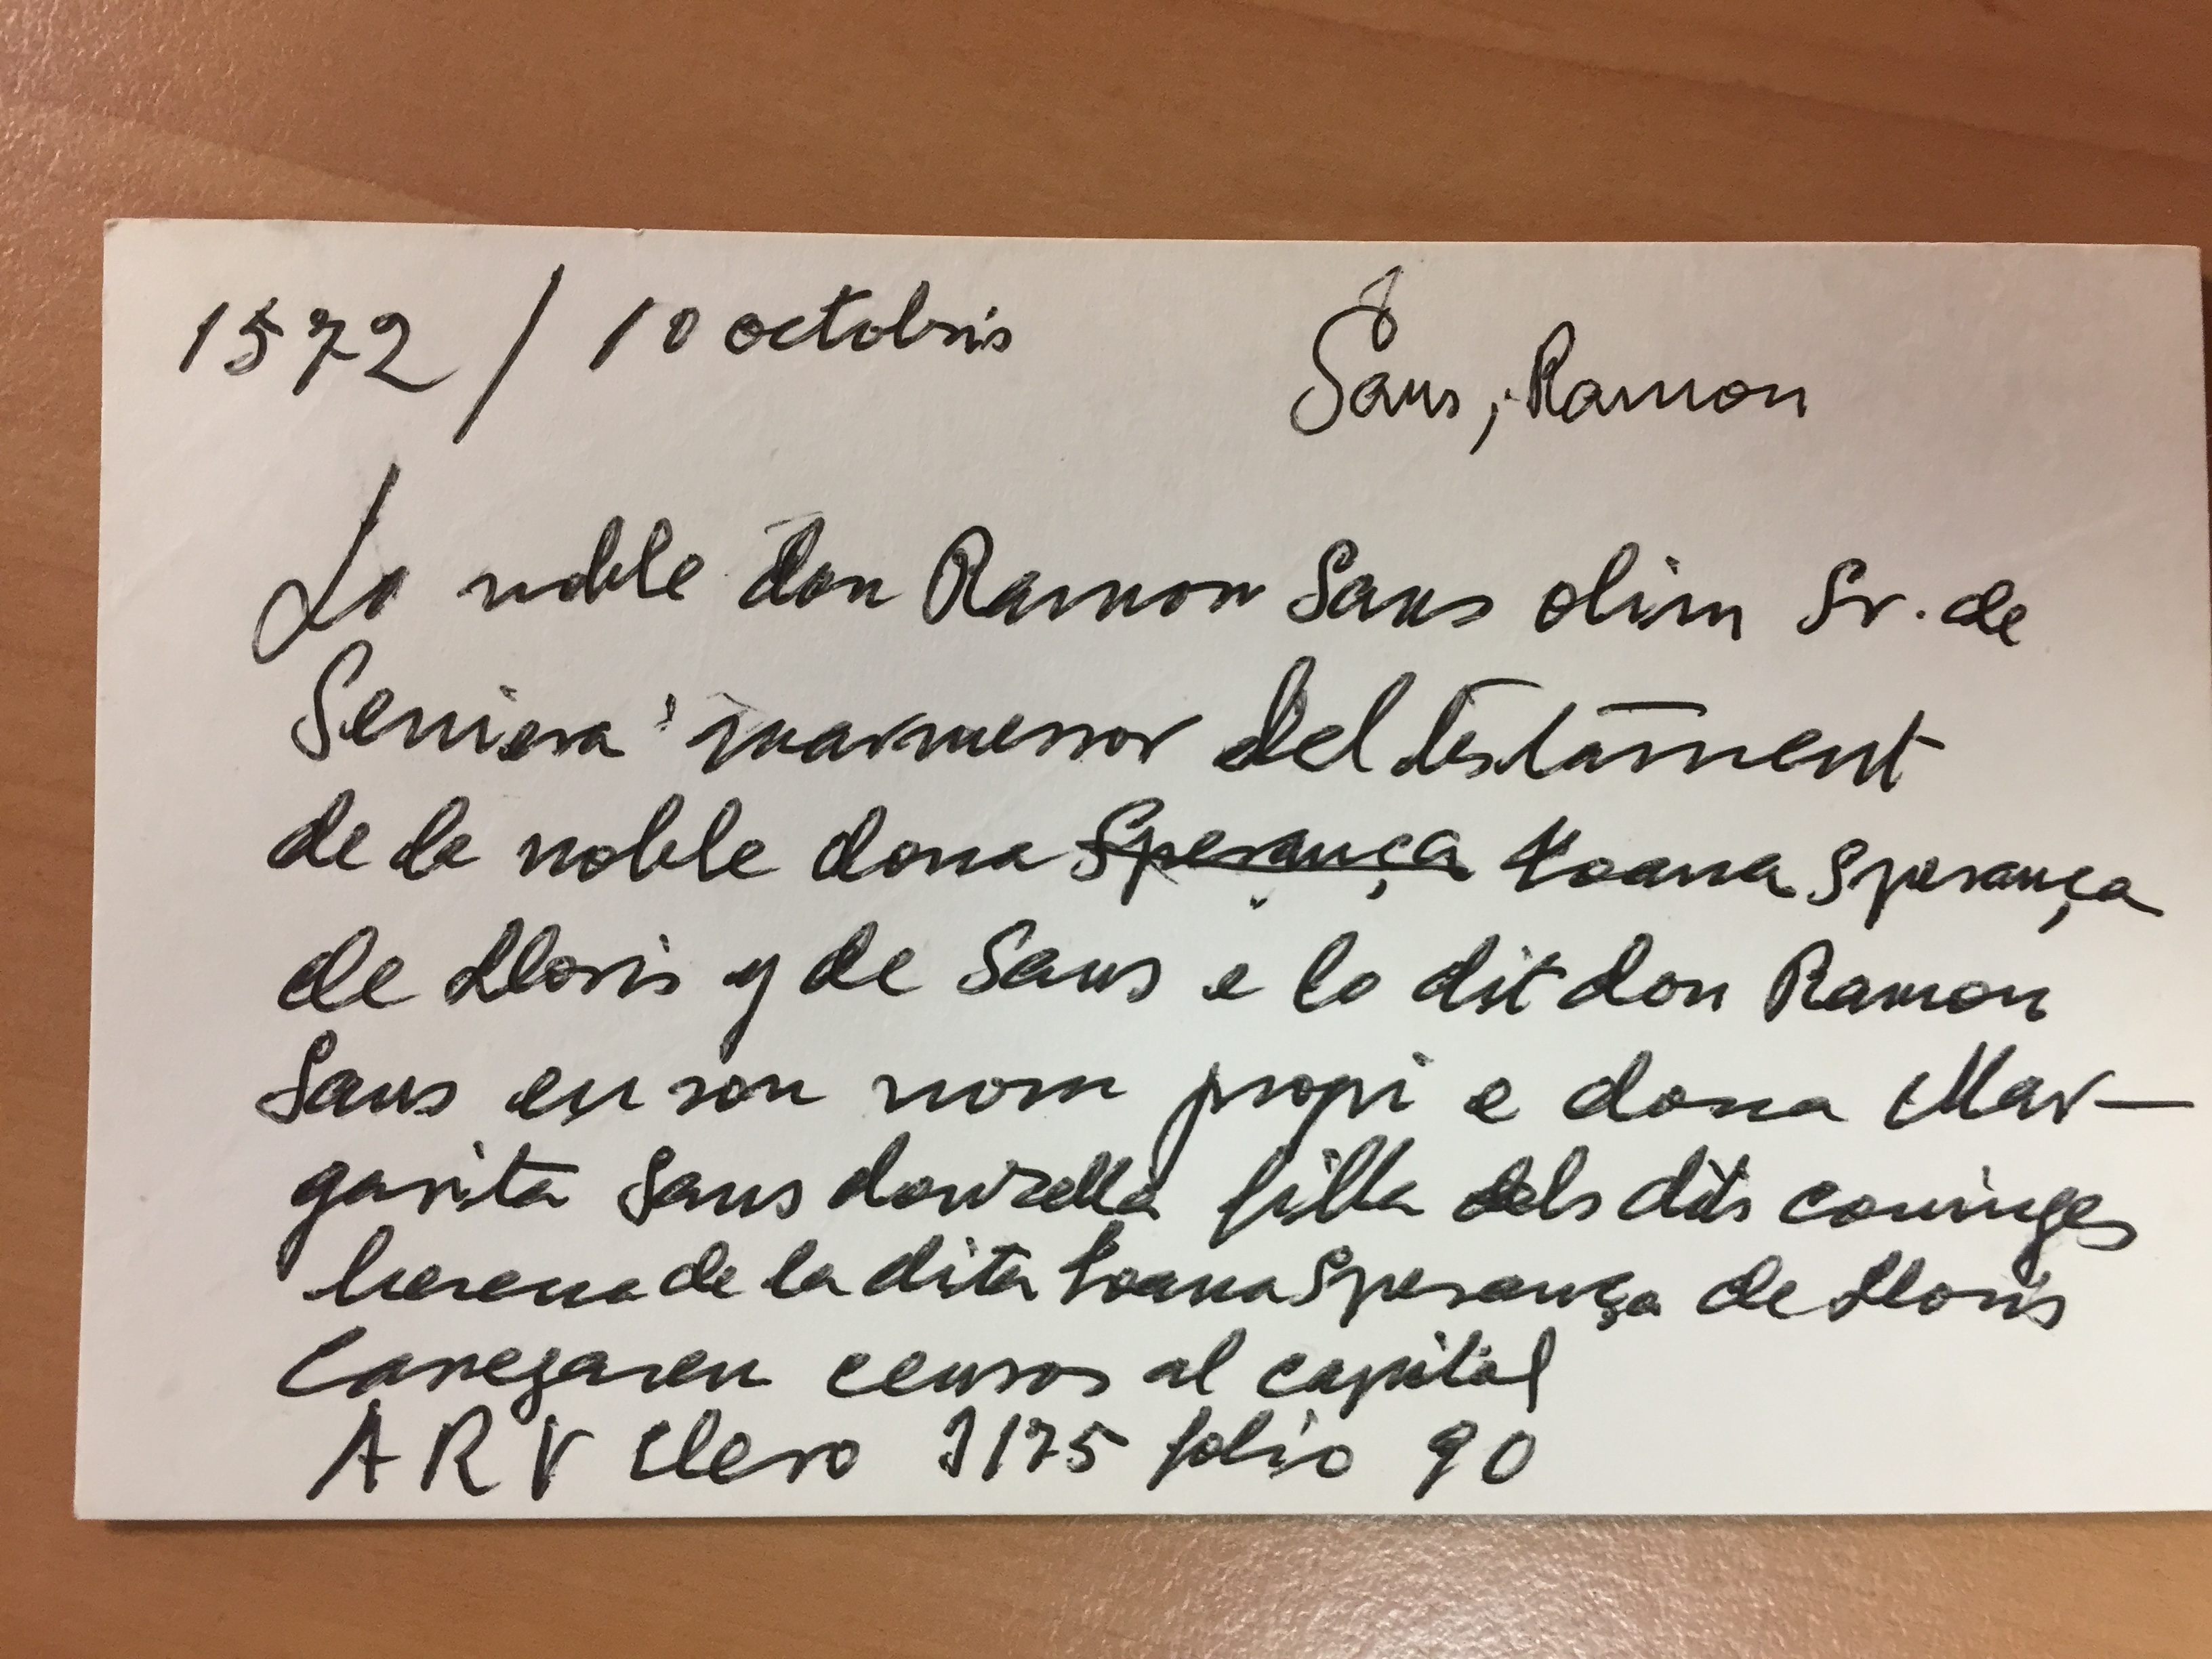 1572 / 10 octobris Sans, Ramon
Lo noble don Ramon Sans olim Sr. de
Seniera marmessor del testament
de la noble dona Sperança Yoana Sperança
de Lloris y de Sans e lo dit don Ramon
Sans en son nom propi e dona Mar-
garita Sans donzella filla dels dits coniuges
hereua de la dita Yoana Sperança de Lloris
Carregaren censos al capital
ARV Clero 3175 folio 90